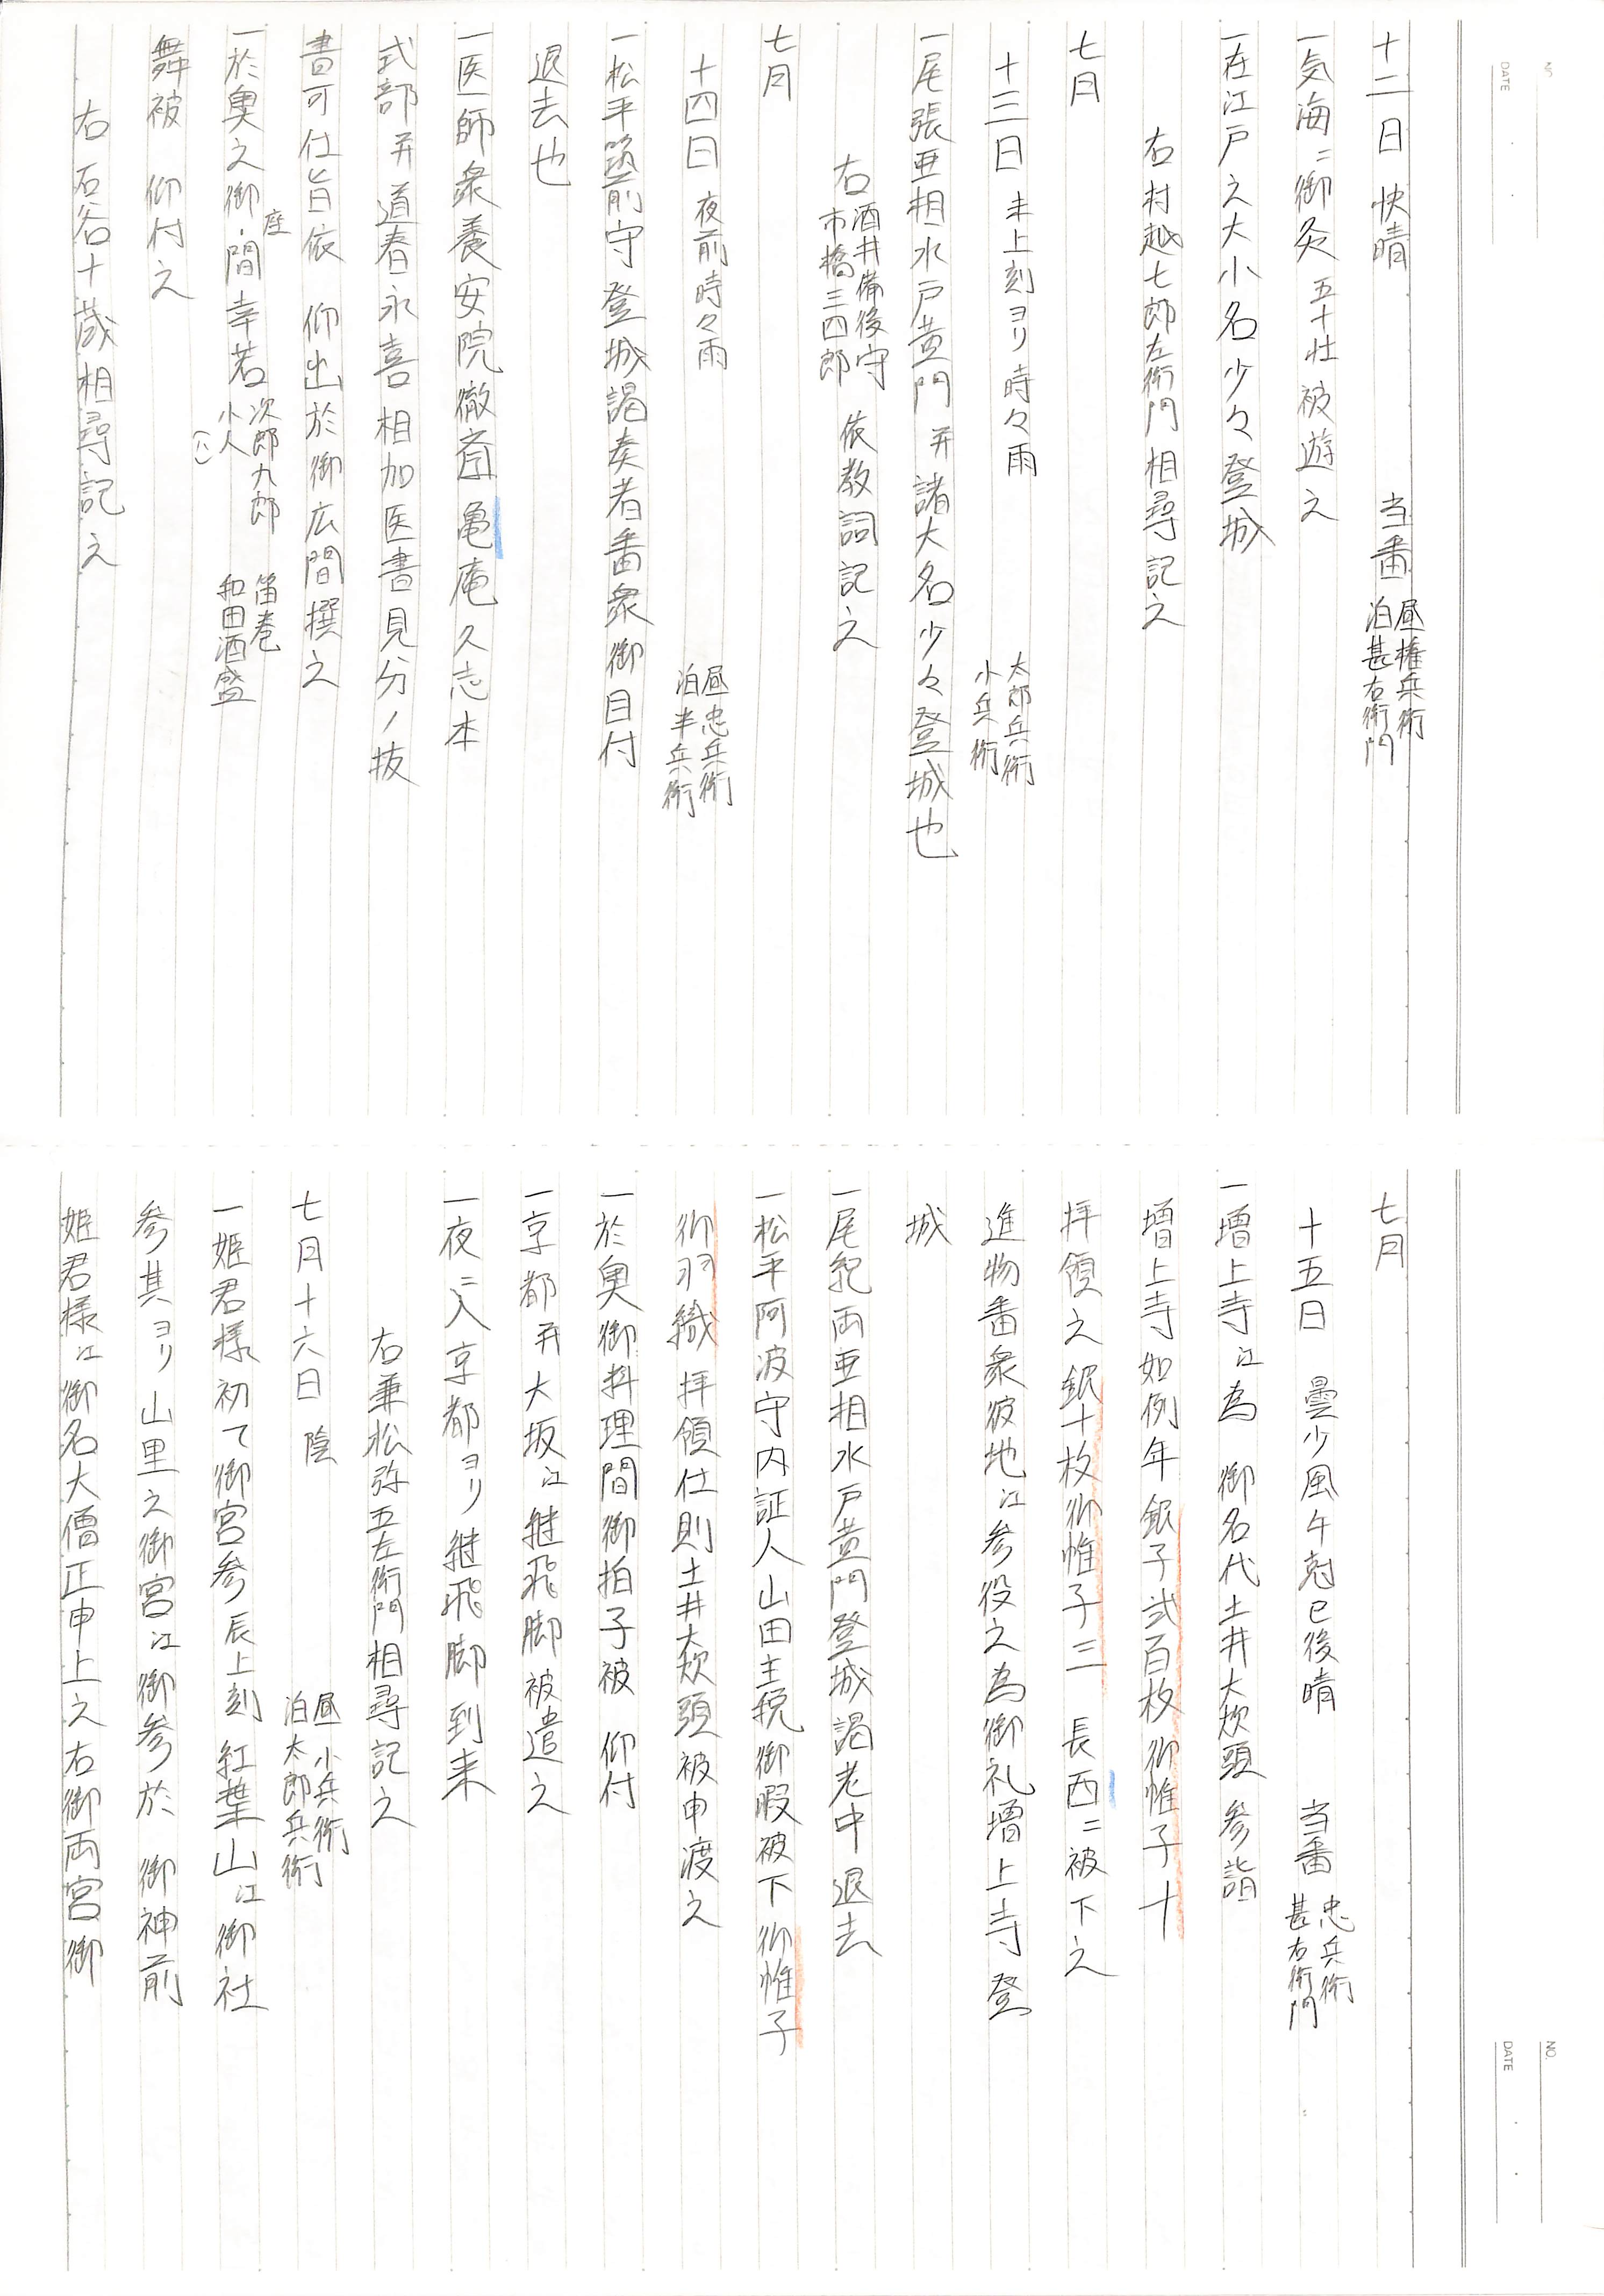 十二日 快晴 当番 昼権兵衛 泊甚右衛門
一気海ニ御灸五十壮被遊之
一在江戸之大小名少々登城
右村越七郎左衛門相尋記之
七月
十三日 未上刻ヨリ時々雨 太郎兵衛 小兵衛
一尾張亜相水戸黄門并諸大名少々登城也
右 酒井備後守 市橋三四郎 依教詞記之
七月
十四日 夜前時々雨 昼忠兵衛 泊半兵衛
一松平筑前守登城謁奏者番衆御目付
退去也
一医師衆養安院徹斎亀庵久志本
式部并道春永喜相加医書見分ノ抜
書可仕旨依 仰出於御広間撰之
一於奥之御座間幸若 次郎九郎 小八(ニ) 笛巻 和田酒盛
舞被 仰付之
右石谷十蔵相尋記之
七月
十五日 曇少風午尅已後晴 当番 忠兵衛 甚右衛門
一増上寺江為 御名代土井大炊頭参詣
増上寺如例年銀子弐百枚御帷子十
拝領之銀十枚御帷子三 長西ニ被下之
進物番衆彼地江参役之為御礼増上寺登
城
一尾紀両亜相水戸黄門登城謁老中退去
一松平阿波守内証人山田主税御暇被下御帷子
御羽織拝領仕則土井大炊頭被申渡之
一於奥御料理間御拍子被 仰付
一京都并大坂江継飛脚被遣之
一夜ニ入京都ヨリ継飛脚到来
右兼松弥五左衛門相尋記之
七月十六日 陰 昼小兵衛 泊太郎兵衛
一姫君様初て御宮参辰上刻紅葉山江御社
参其ヨリ山里之御宮江御参於 御神前
姫君様江御名大僧正申上之右御両宮御
NO.
DATE
NO.
DATE